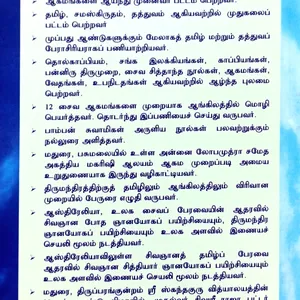 ஆகமங்களை ஆய்ந்து முனைவர் பட்டம் பெற்றவர்.
தமிழ், சமஸ்கிருதம், தத்துவம் ஆகியவற்றில் முதுகலைப்
பட்டம் பெற்றவர்
முப்பது ஆண்டுகளுக்கும் மேலாகத் தமிழ் மற்றும் தத்துவப்
பேராசிரியராகப் பணியாற்றியவர்.
தொல்காப்பியம், சங்க இலக்கியங்கள், காப்பியங்கள்,
பன்னிரு திருமுறை, சைவ சித்தாந்த நூல்கள், ஆகமங்கள்,
வேதங்கள், உபநிடதங்கள் ஆகியவற்றில் ஆழ்ந்த புலமை
பெற்றவர்.
12 சைவ ஆகமங்களை முறையாக ஆங்கிலத்தில் மொழி
பெயர்த்தவர். தொடர்ந்து இப்பணியைச் செய்து வருபவர்.
பாம்பன் சுவாமிகள் அருளிய நூல்கள் பலவற்றுக்கும்
நல்லுரை அளித்தவர்.
மதுரை, பசுமலையில் உள்ள அன்னை லோபமுத்ரா சமேத
அகத்திய மகரிஷி ஆலயம் ஆகம முறைப்படி அமைய
உறுதுணையாக இருந்து வழிகாட்டியவர்.
திருமந்திரத்திற்குத் தமிழிலும் ஆங்கிலத்திலும் விரிவான
முறையில் பேருரை எழுதி வருபவர்.
ஆஸ்திரேலியா, உலக சைவப் பேரவையின் ஆதரவில்
சிவஞான போத ஞானயோகப் பயிற்சியையும், திருமந்திர
ஞானயோகப் பயிற்சியையும் உலக அளவில் இணைச்
செயலி மூலம் நடத்தியவர்.
ஆஸ்திரேலியாவிலுள்ள சிவஞானத் தமிழ்ப் பேரவை
ஆதரவில் சிவஞான சித்தியார் ஞானயோகப் பயிற்சியையும்
உலக அளவில் இணைச் செயலி மூலம் நடத்தியவர்.
மதுரை, திருப்பரங்குன்றம் ஸ்ரீ ஸ்கந்தகுரு வித்யாலயத்தின்